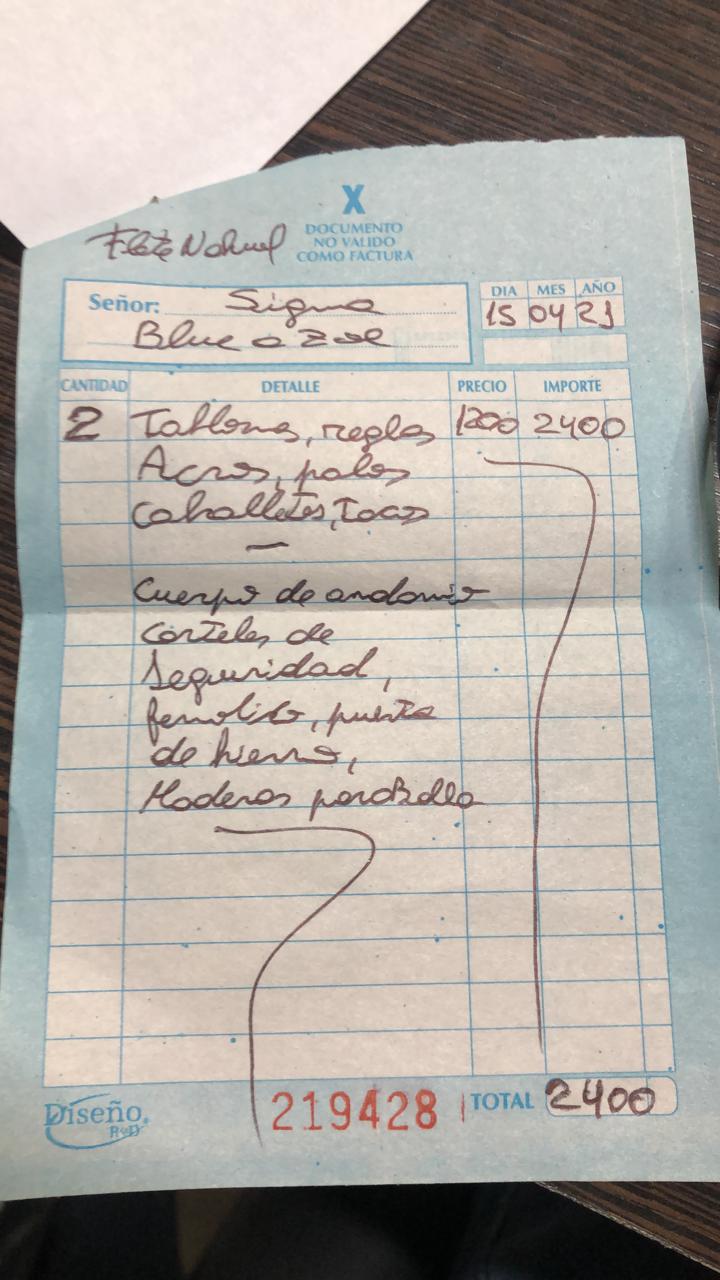 X
DOCUMENTO
NO VALIDO
COMO FACTURA
Flete Nahuel
Señor: Sigma
Blue a Zoe
DIA MES AÑO
15 04 21
CANTIDAD DETALLE PRECIO IMPORTE
2 Tablones, reglas 1200 2400
Acros, palos
Caballetes, Tacos
—
Cuerpo de andamio
Carteles de
Seguridad,
fenolico, puerta
de hierro,
Maderas para
Diseño
R&D
219428 TOTAL 2400